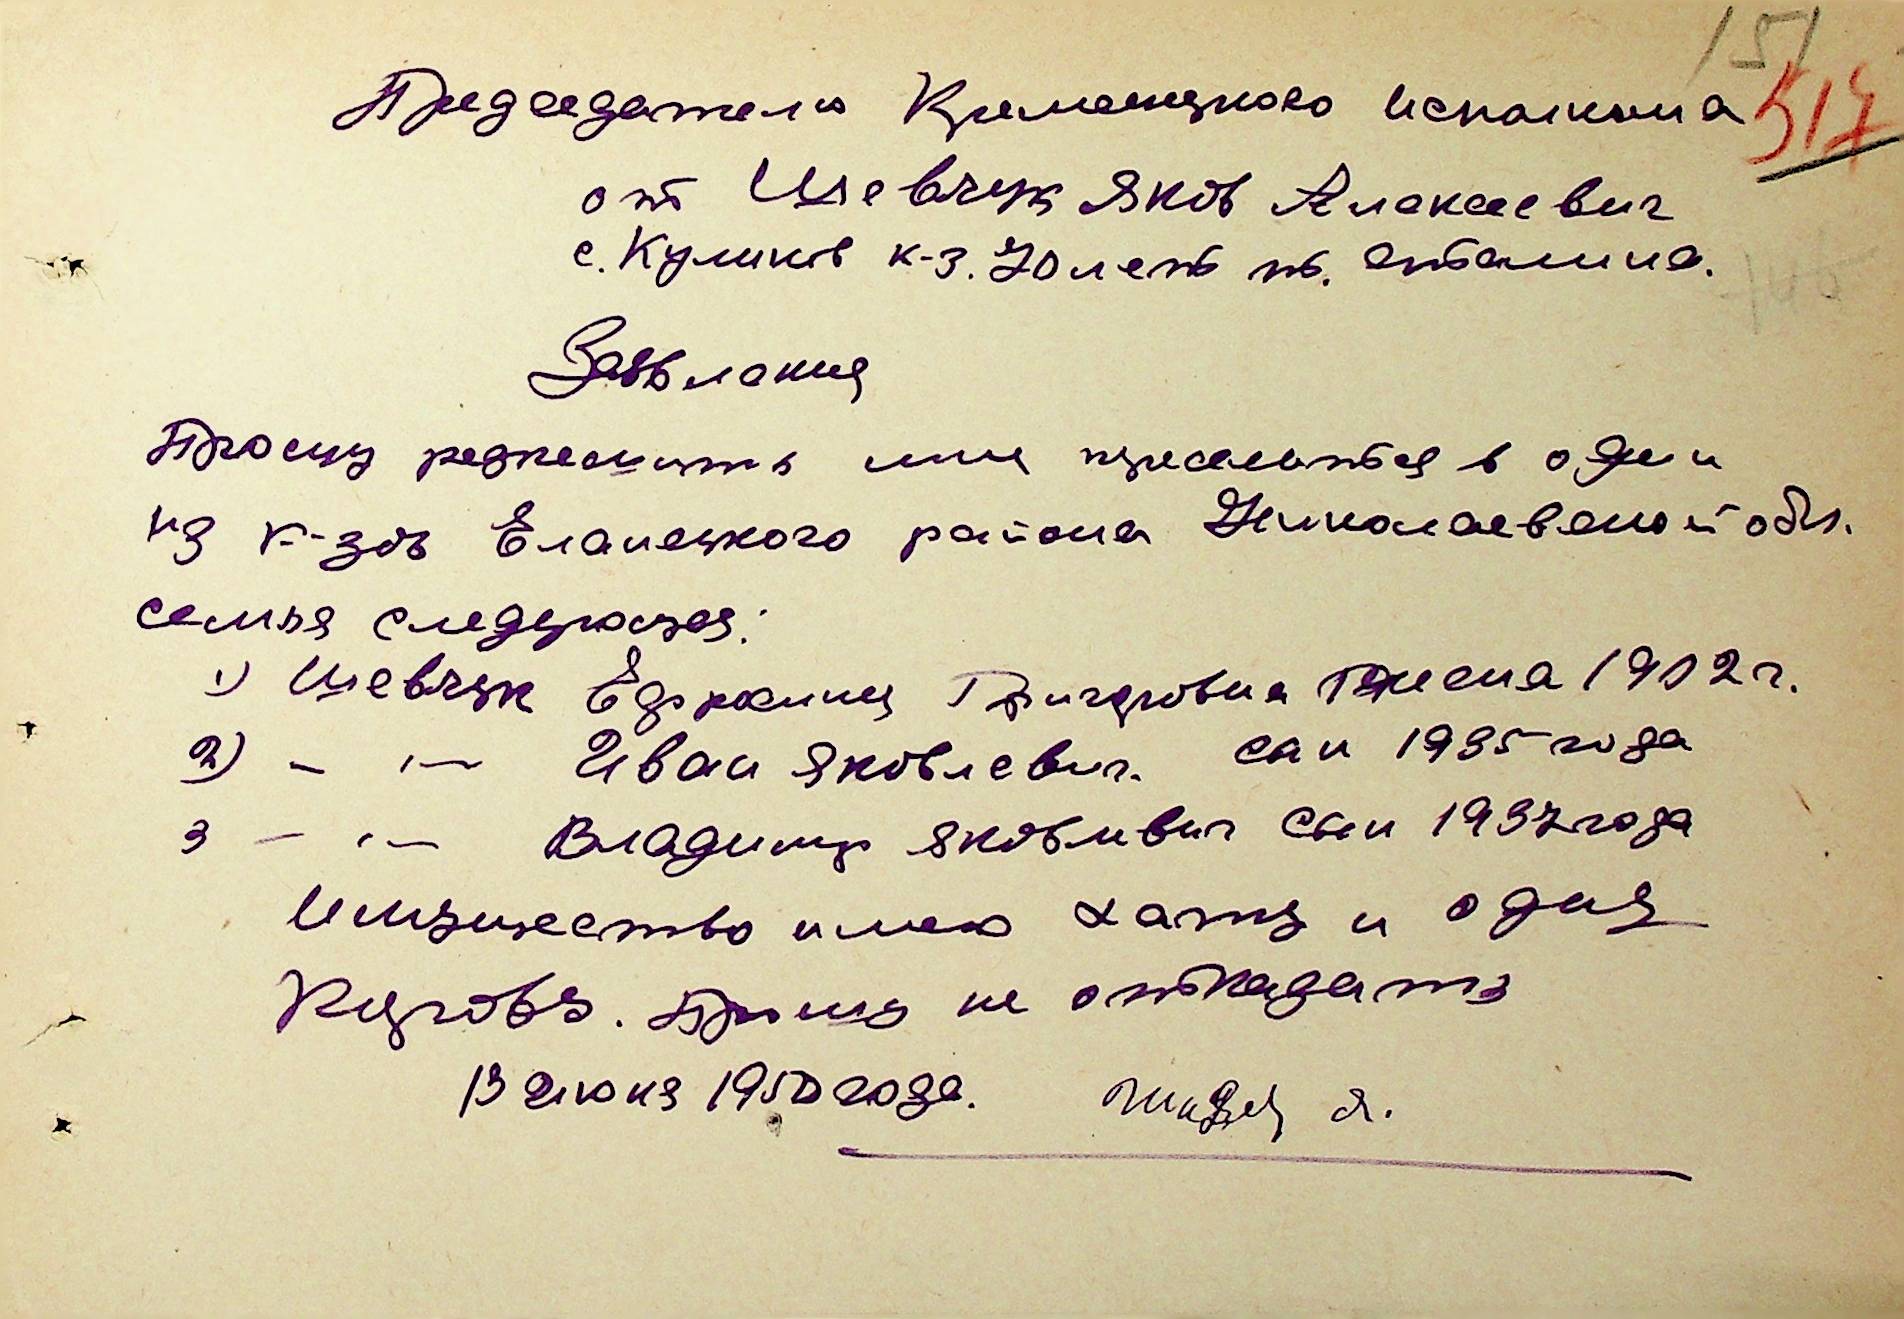 151
517
Председателю Кременецкого исполкома
от Шевчук Яков Алексеевич
с. Куликов к-з. 70 лет т. Сталина.
Заявлания
Прошу разрешить мни преселится в один
из к-зов Еланецкого района Николаевской обл.
семья следующая:
1) Шевчук Григоровна жена 1912 г.
2) – " – Иван Яковлевич. сын 1935 года
3 – " – Владимир Яковливич сын 1937 года
Имущество имею хату и одну
Корову. Прошу не отказать
13 Июня 1950 года. Я.